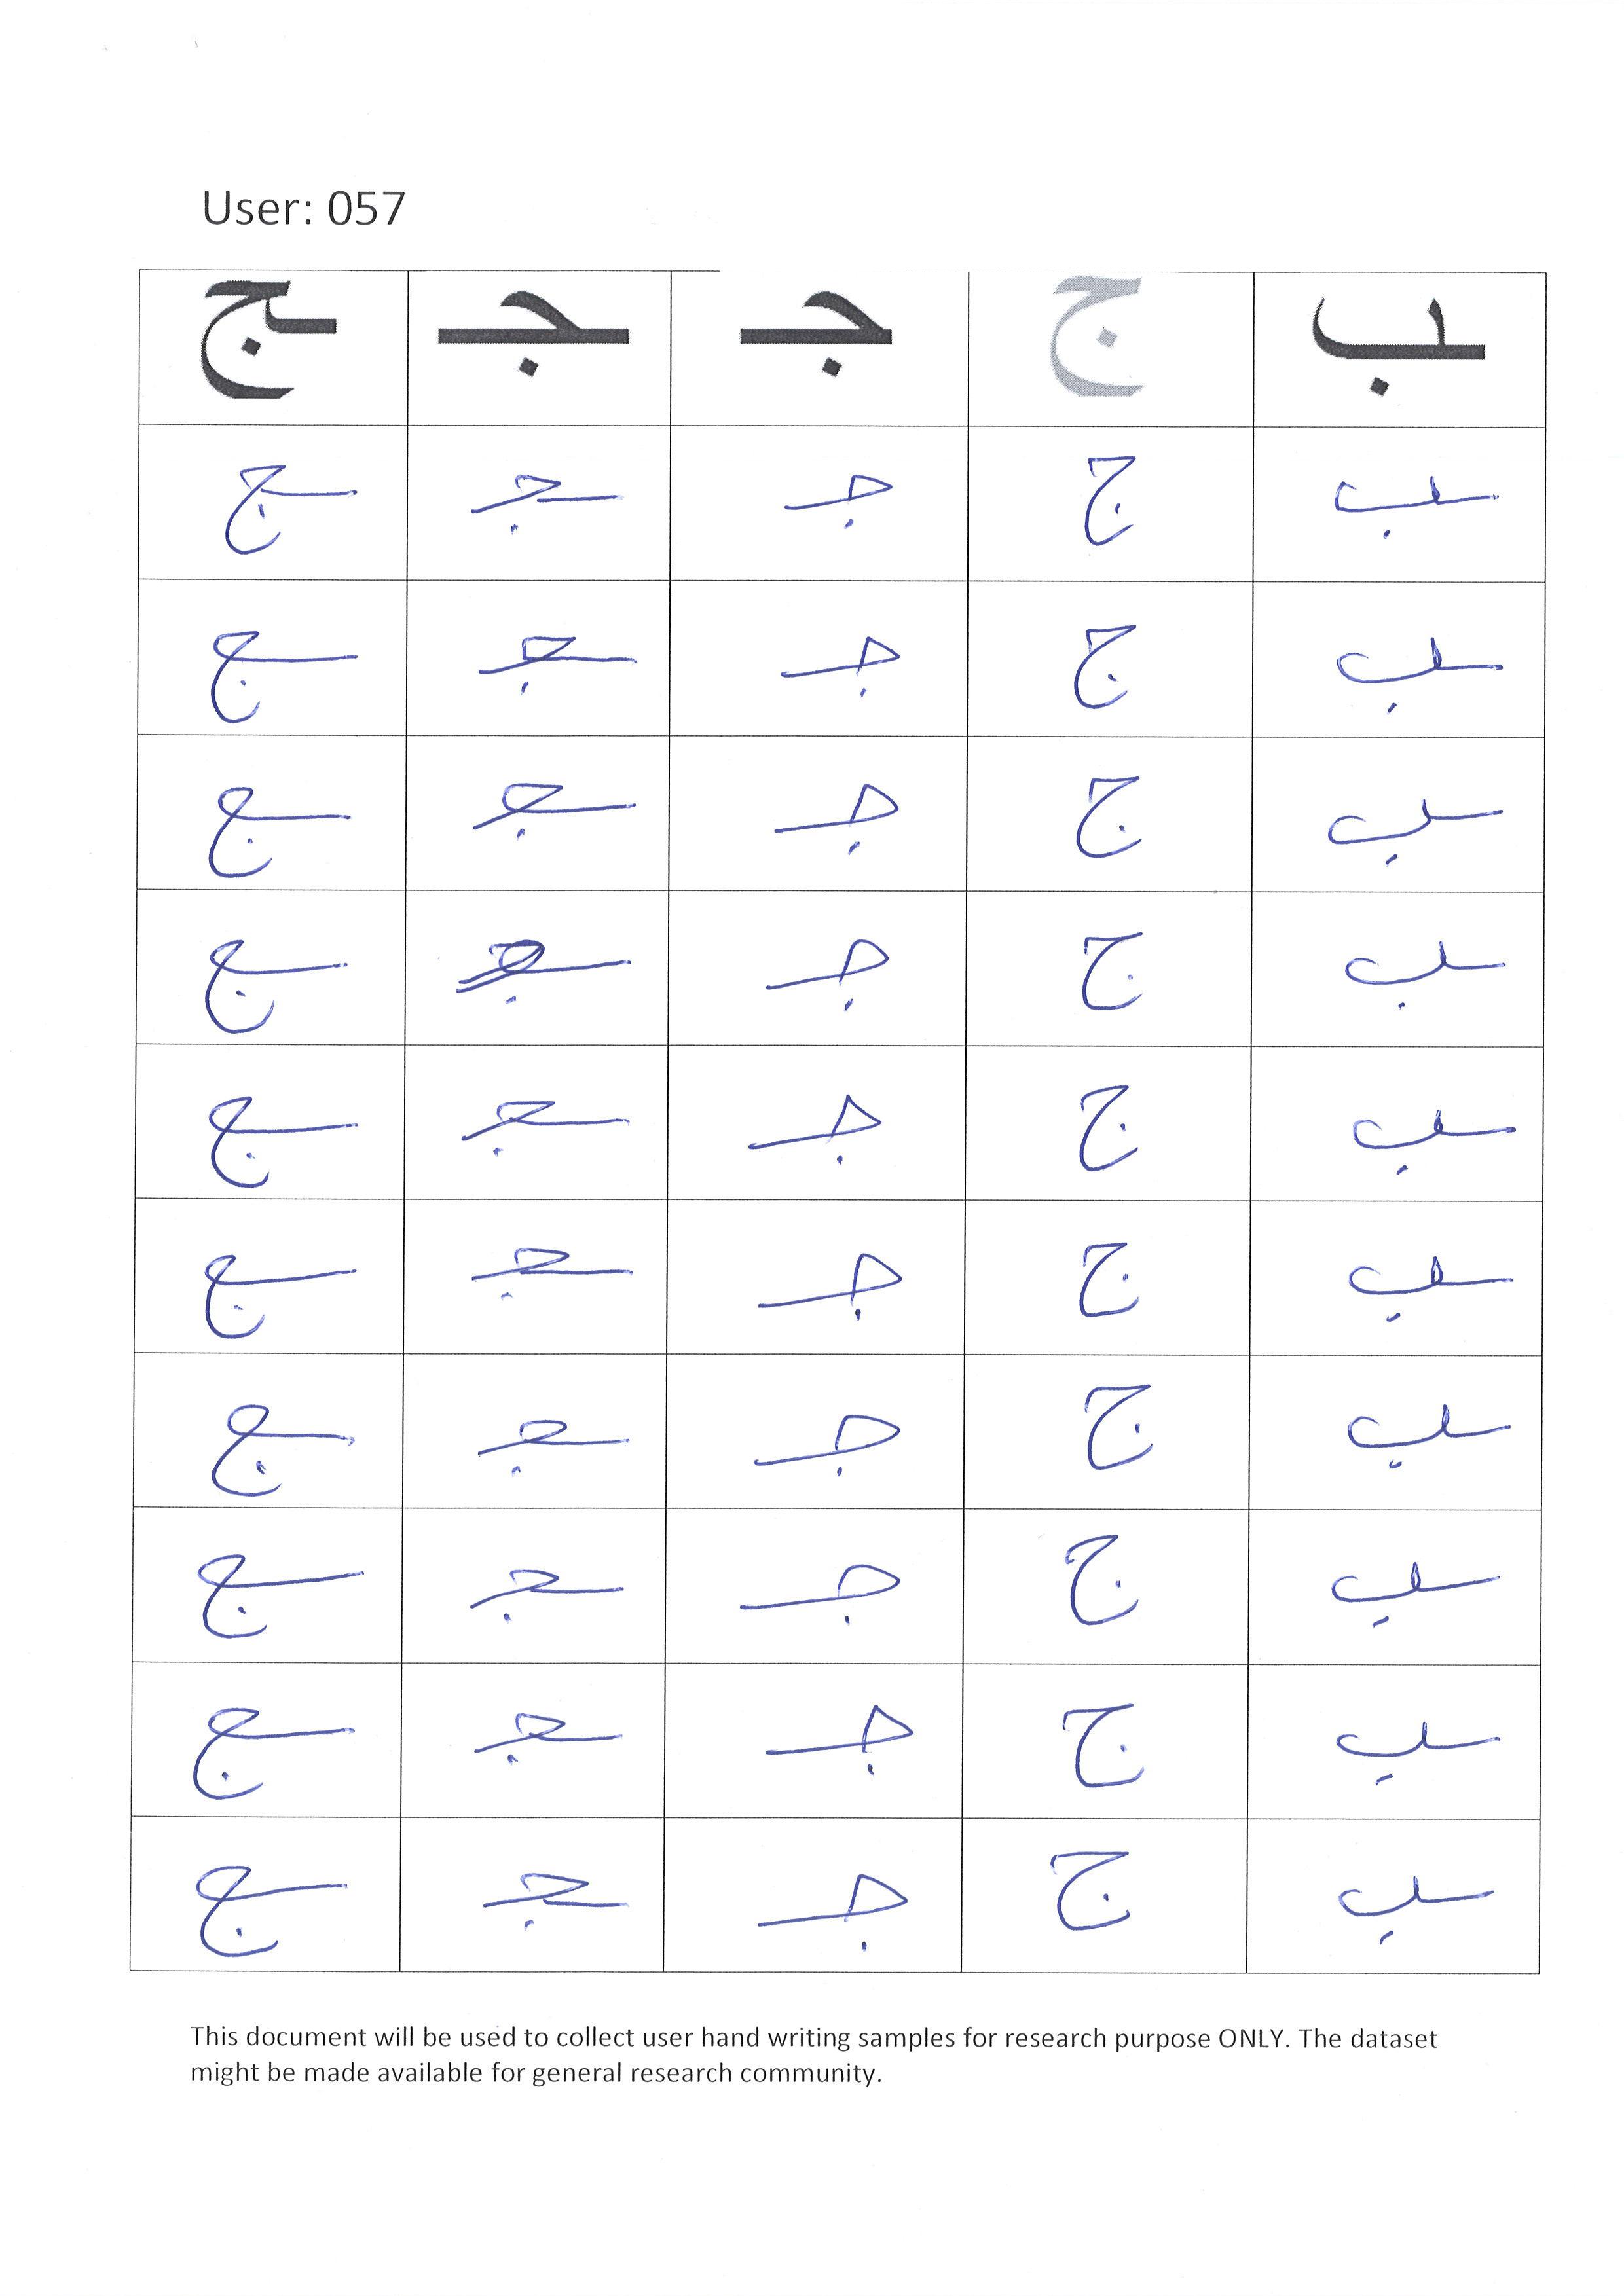 User: 057
ـب ج جـ ـجـ ـج
ـب ج جـ ـجـ ـج
ـب ج جـ ـجـ ـج
ـب ج جـ ـجـ ـج
ـب ج جـ ـجـ ـج
ـب ج جـ ـجـ ـج
ـب ج جـ ـجـ ـج
ـب ج جـ ـجـ ـج
ـب ج جـ ـجـ ـج
ـب ج جـ ـجـ ـج
ـب ج جـ ـجـ ـج
This document will be used to collect user hand writing samples for research purpose ONLY. The dataset
might be made available for general research community.